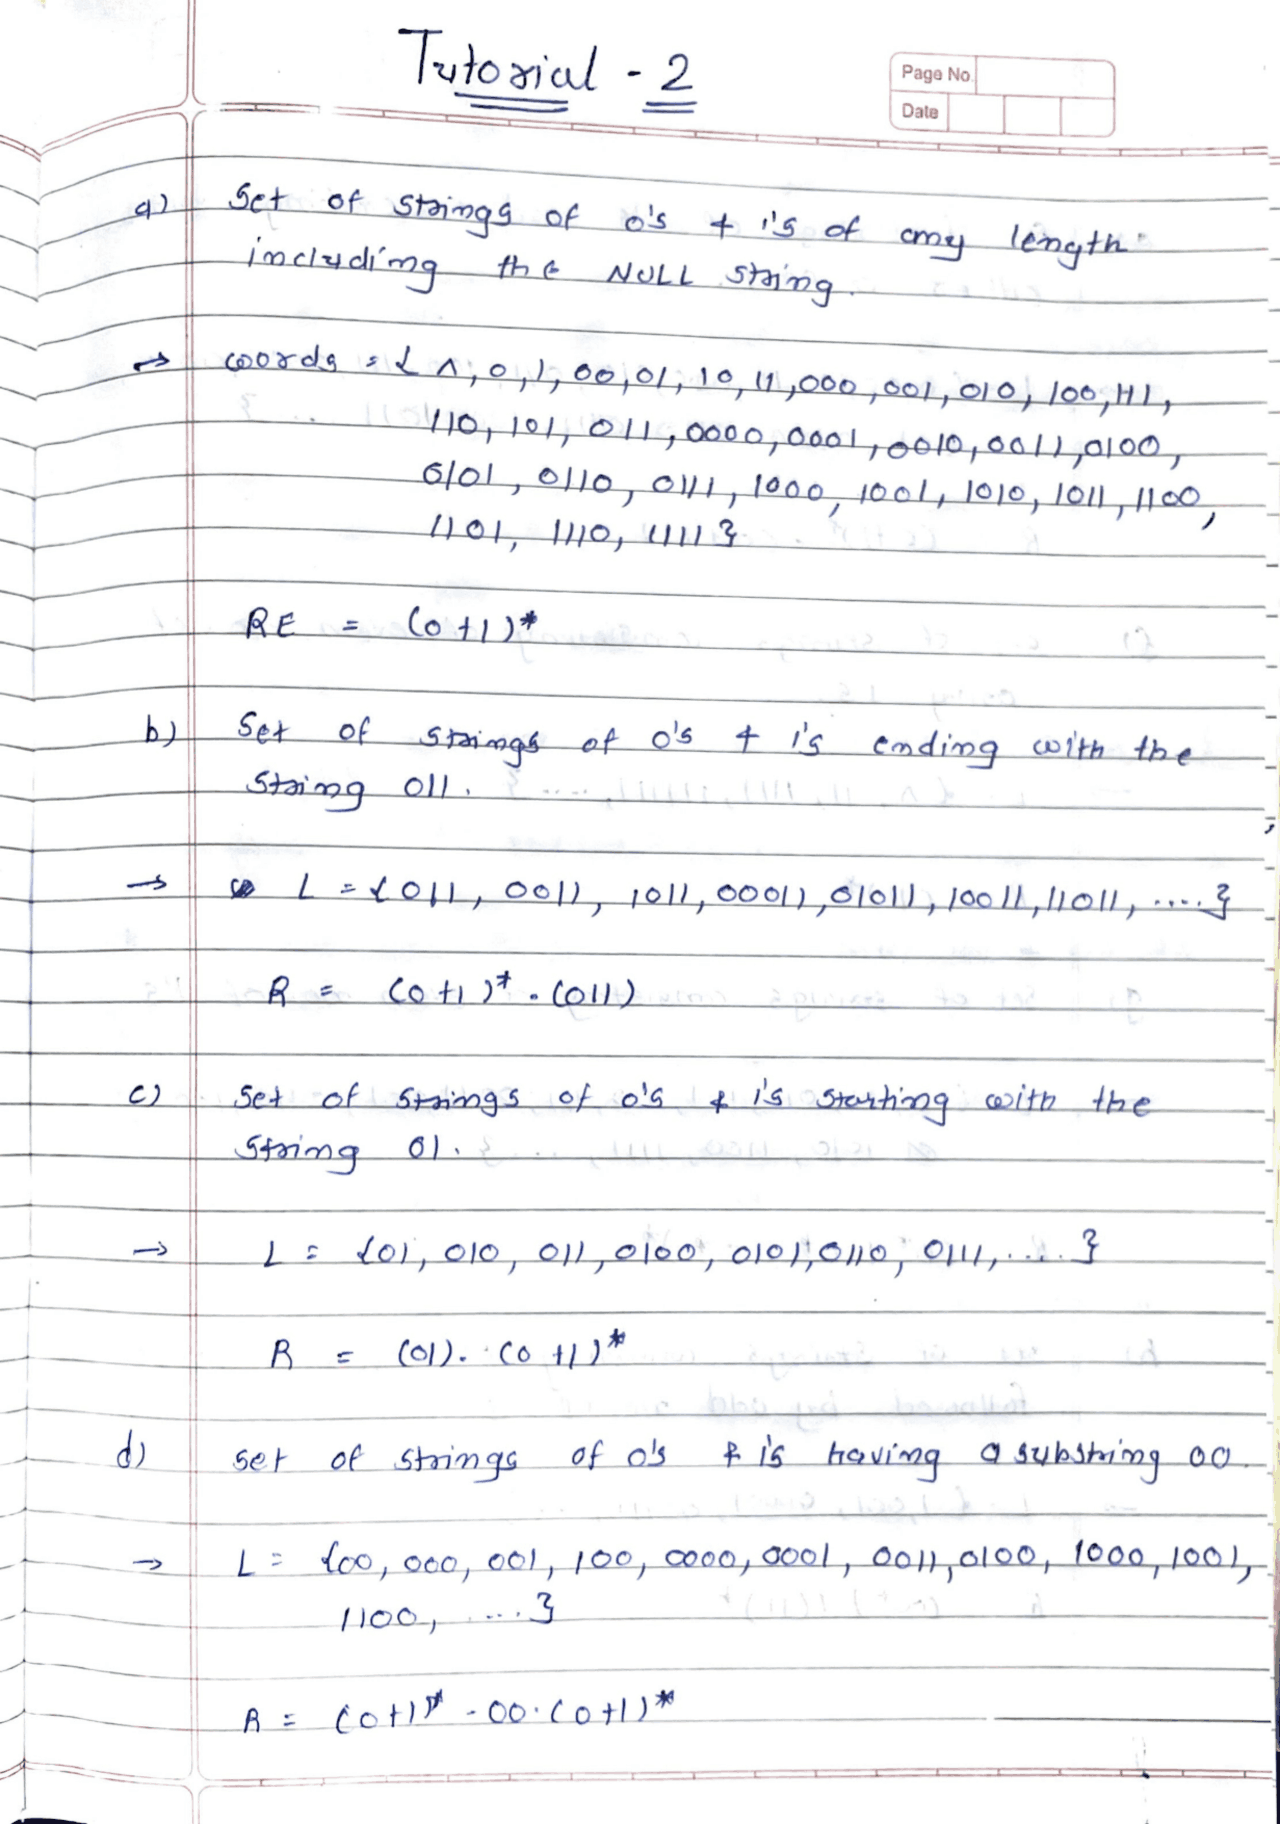 Tutorial - 2
Page No.
Date
a) Set of strings of 0's & 1's of any length
including the NULL string.
→ words = { ^, 0, 1, 00, 01, 10, 11, 000, 001, 010, 100, 111,
110, 101, 011, 0000, 0001, 0010, 0011, 0100,
0101, 0110, 0111, 1000, 1001, 1010, 1011, 1100,
1101, 1110, 1111 }
RE = (0+1)*
b) Set of strings of 0's & 1's ending with the
string 011.
→ L = { 011, 0011, 1011, 00011, 01011, 10011, 11011, ..... }
R = (0+1)* . (011)
c) Set of strings of 0's & 1's starting with the
string 01.
→ L = { 01, 010, 011, 0100, 0101, 0110, 0111, ..... }
R = (01). (0+1)*
d) set of strings of 0's & 1's having a substring 00.
→ L = { 00, 000, 001, 100, 0000, 0001, 0011, 0100, 1000, 1001,
1100, .... }
R = (0+1)* . 00 . (0+1)*